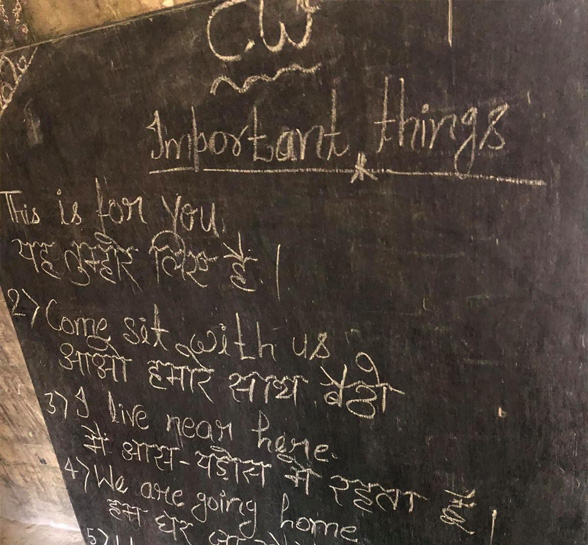 C.W
Important things
This is for you.
यह तुम्हारे लिए है।
2) Come sit with us
आओ हमारे साथ बैठो
3) I live near here.
मैं आस-पड़ोस में रहता हूँ।
4) We are going home
हम घर जा रहे
5)